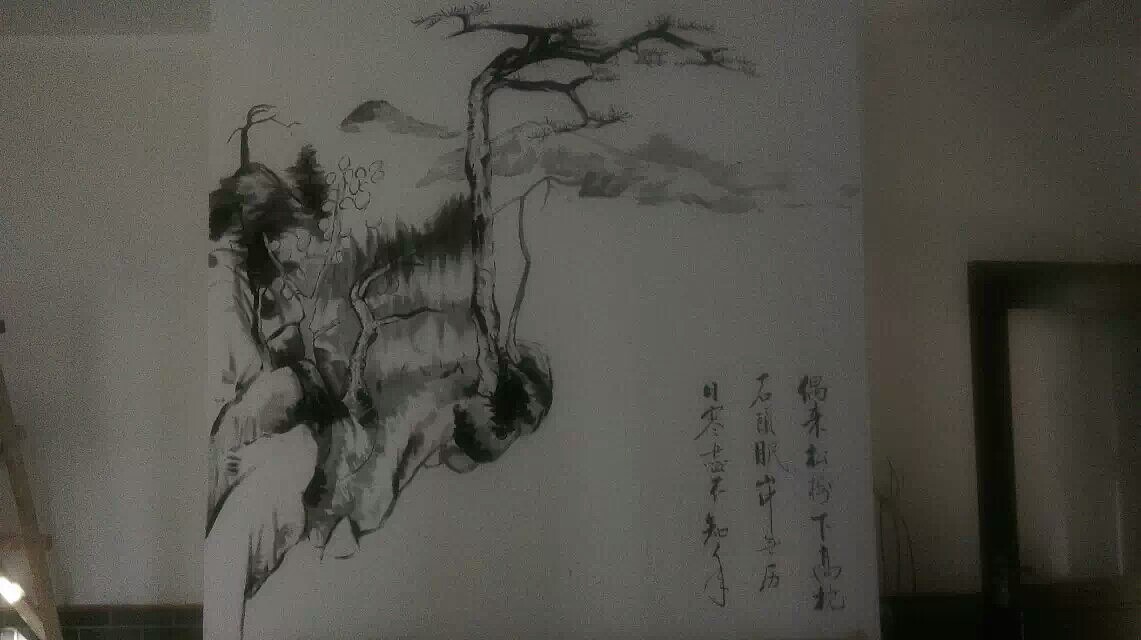 偶来松树下高枕
石頭眠山中无历
日寒盡不知年